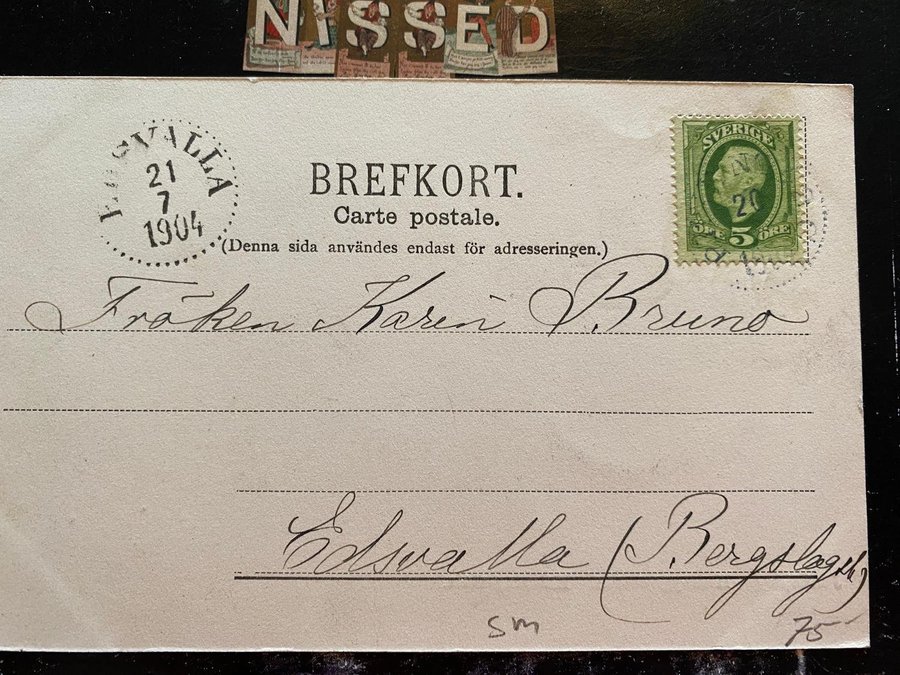 NISSED
EDSVALLA
21
7
1904
BREFKORT.
Carte postale.
(Denna sida användes endast för adresseringen.)
SVERIGE
20
5 ÖRE 5 ÖRE
Fröken Karin Bruno
Edsvalla (Bergslagsb.)
SM
75